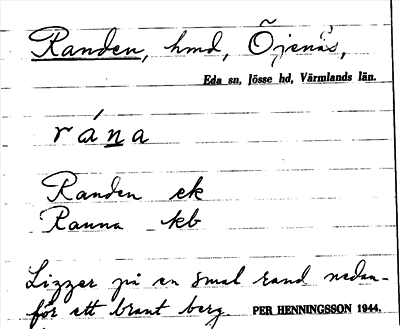 Randen, hmd, Öjenäs,
Eda sn, Jösse hd, Värmlands län.
rána
Randen ek
Ranna kb
Lizzer på en smal rand nedan-
för ett brant berg. PER HENNINGSSON 1944.